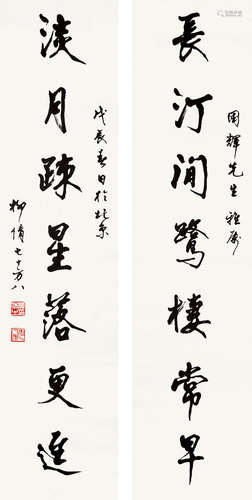 長汀閒鷺棲常早
國輝先生雅屬
淡月疎星落更遲
戊辰春日於北京
柳倩七十有八